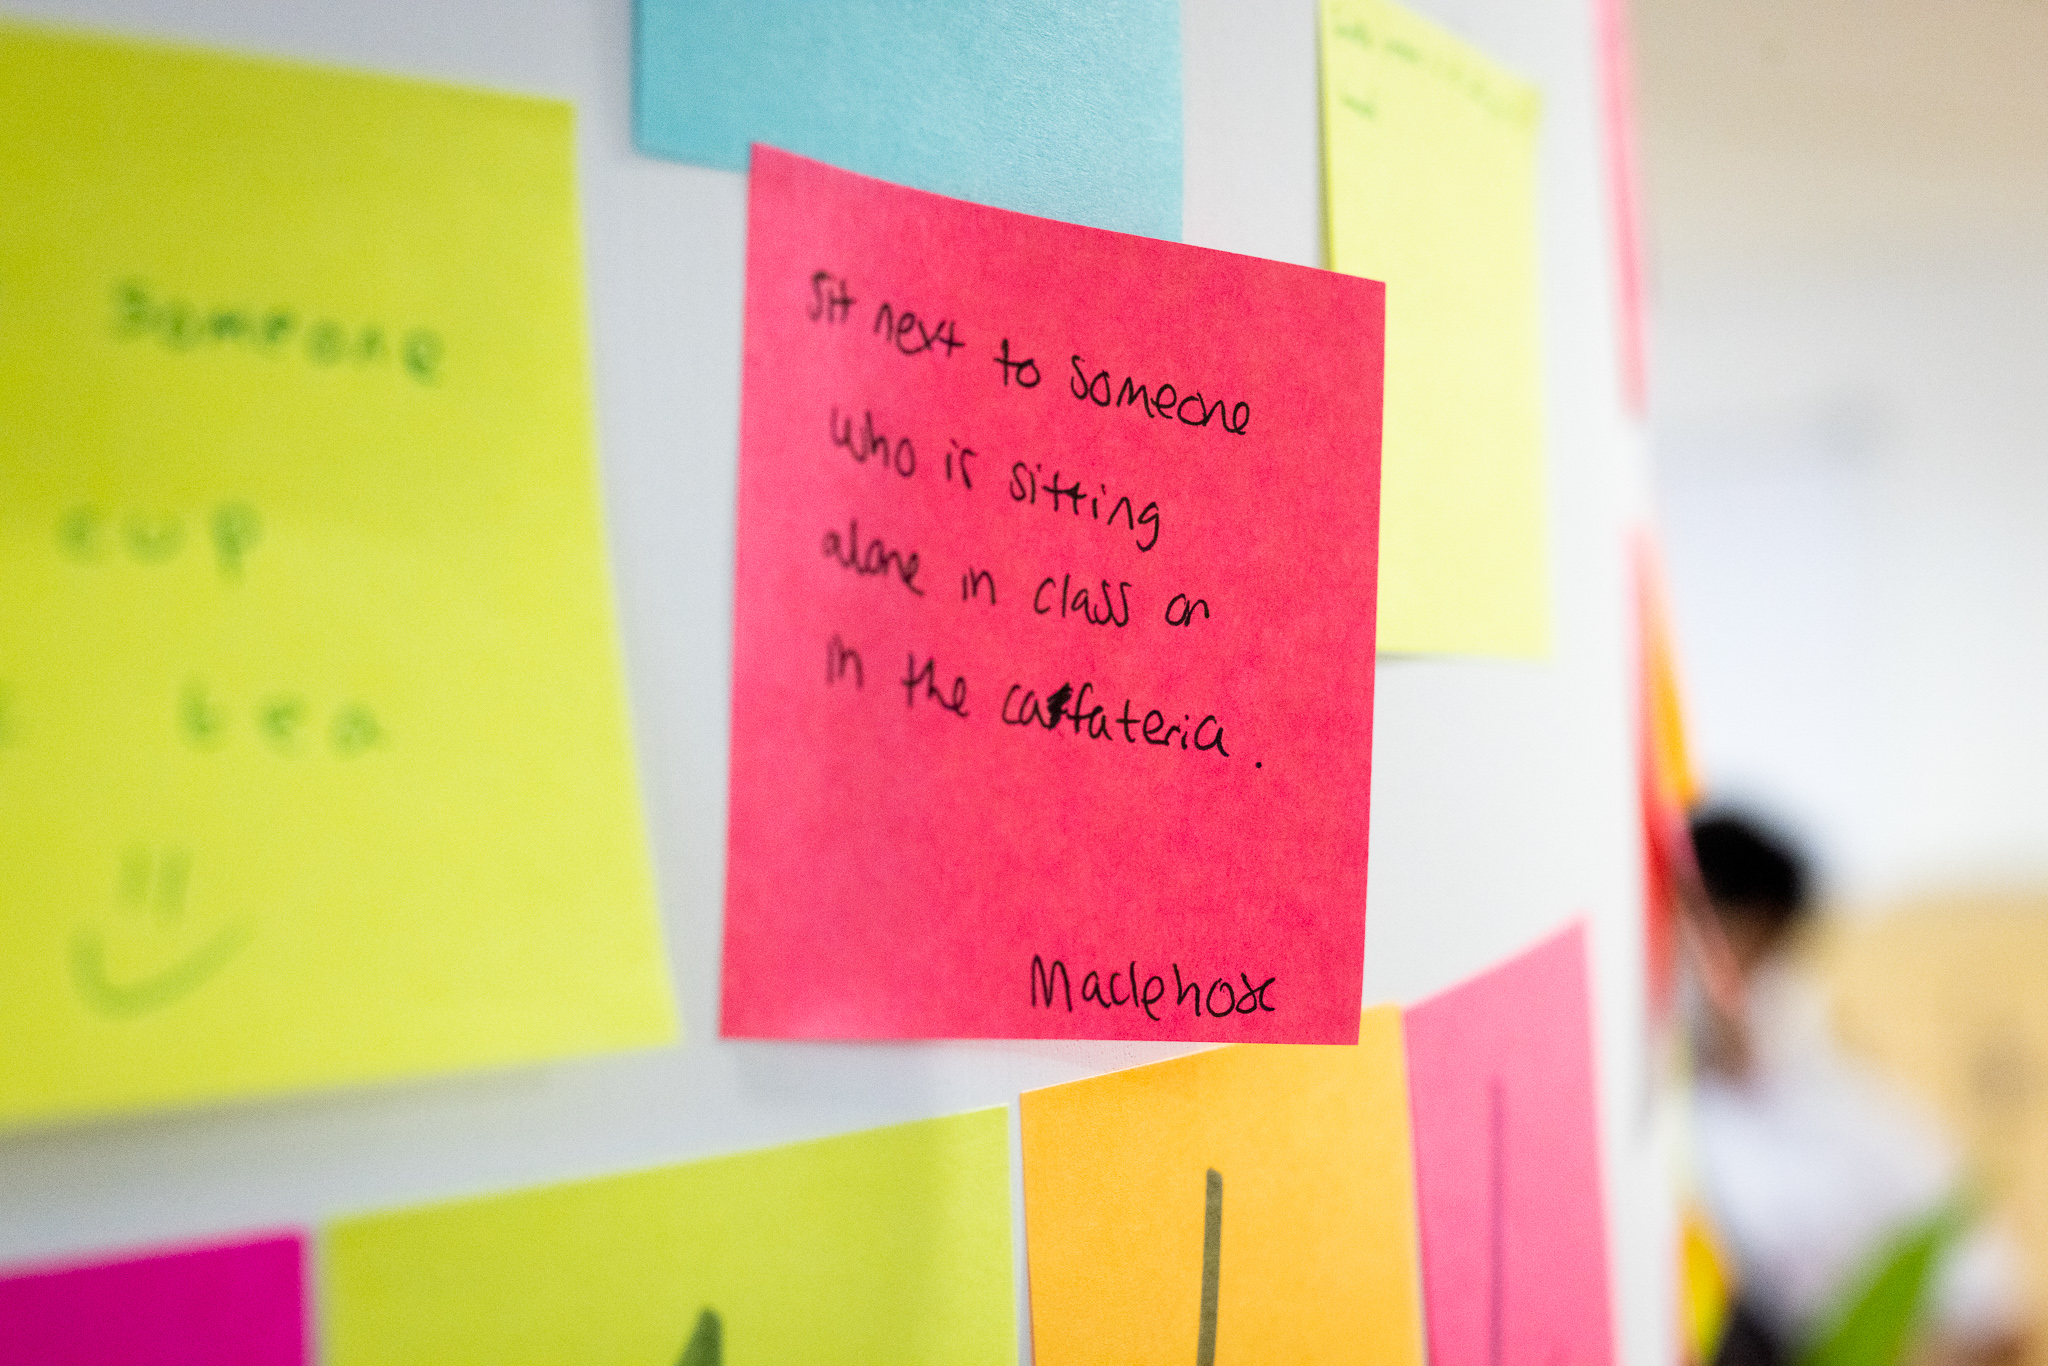 someone
cup
tea
Sit next to someone
who is sitting
alone in class or
in the cafateria.
Maclehose